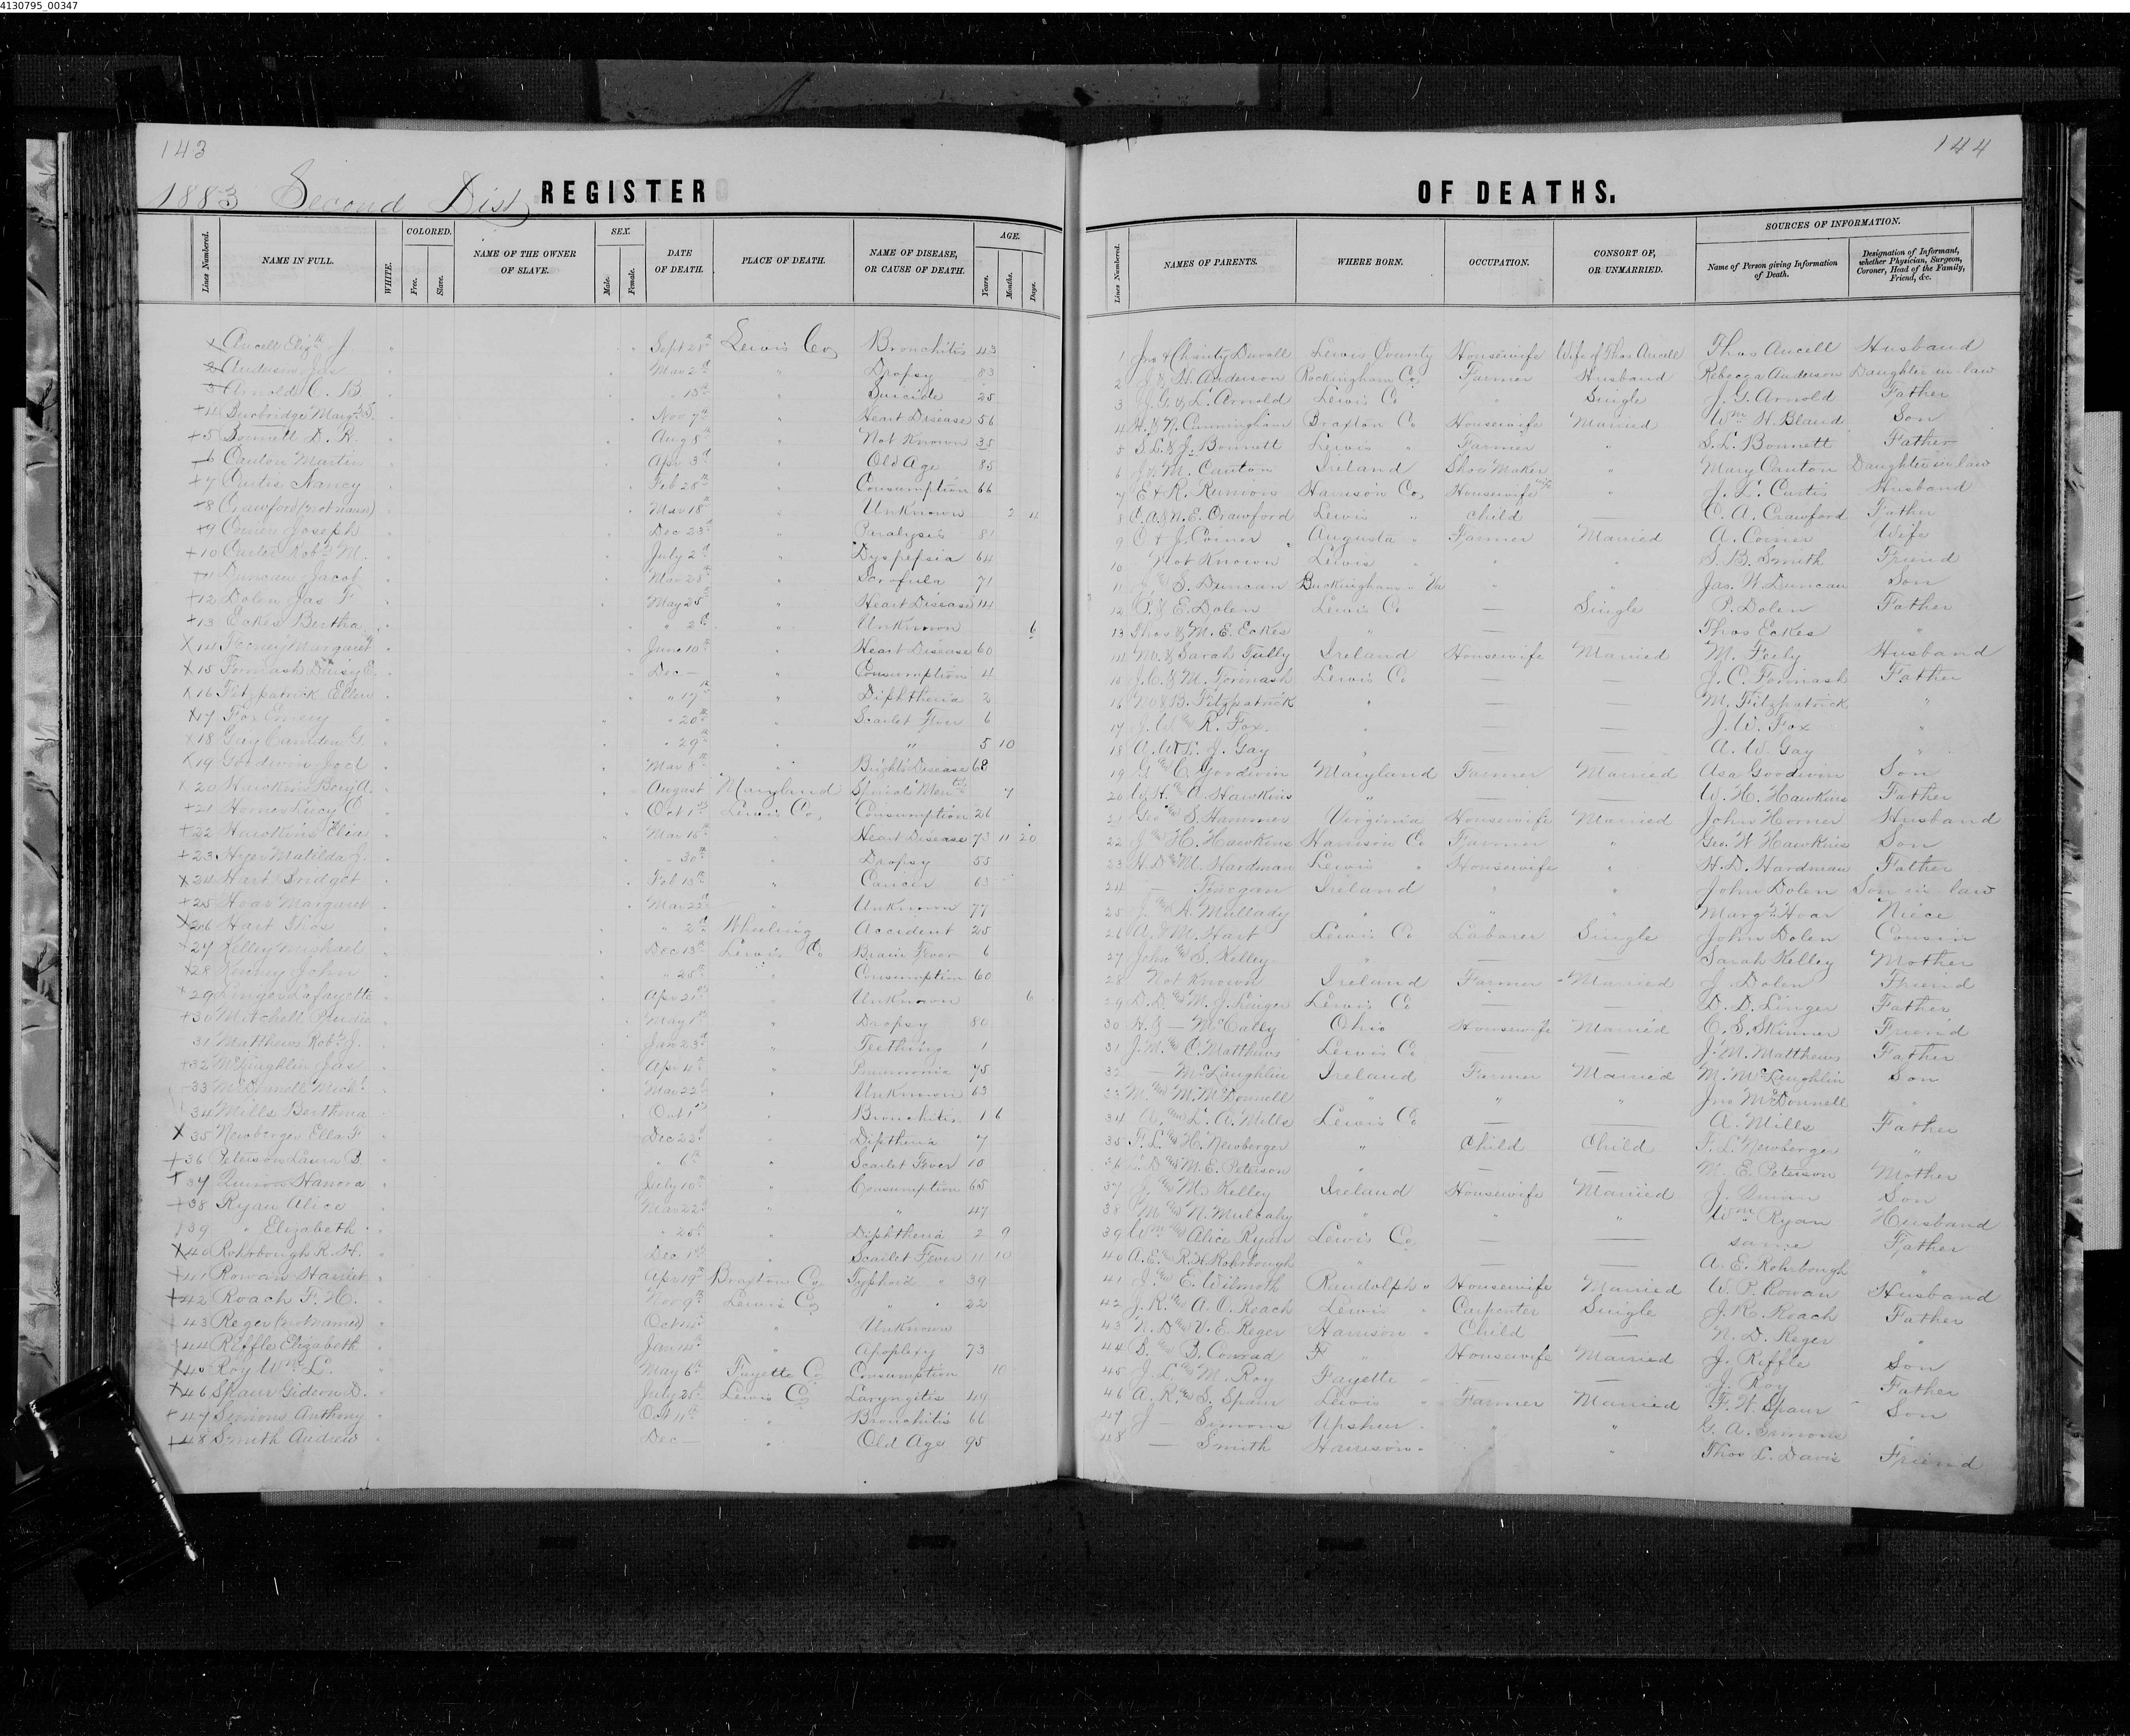 4130795_00347
143
1883 Second Dist REGISTER
Lines Numbered. NAME IN FULL. WHITE. COLORED. Free. Slave. NAME OF THE OWNER OF SLAVE. SEX. Male. Female. DATE OF DEATH. PLACE OF DEATH. NAME OF DISEASE, OR CAUSE OF DEATH. AGE. Years. Months. Days.
Ancell Eliz J. Sept 28th Lewis Co Bronchitis 43
2 Anderson Jas Mar 2d " Dropsy 83
3 Arnold C. B. " 15th " Suicide 25
4 Marg Nov 7th " Heart Disease 56
5 Bonnett D. R. Aug 8th " Not Known 35
6 Canton Martin Apr 3d " Old Age 85
7 Curtis Nancy Feb 28th " Consumption 66
8 Crawford (not named) Mar 18th " Unknown 2 4
9 Coiner Joseph Dec 23d " Paralysis 81
10 Carter Robt M. July 2d " Dyspepsia 64
11 Duncan Jacob Mar 28th " Scrofula 71
12 Dolen Jas F May 25th " Heart Disease 14
13 Eakes Bertha " 2d " Unknown 6
14 Margaret June 10th " Heart Disease 60
15 Formash Daisy E. Dec — " Consumption 4
16 Fitzpatrick Ellen " 17th " Diphtheria 2
17 Fox Emery " 20th " Scarlet Fever 6
18 Gay Camden G. " 29th " " 5 10
19 Goodwin Joel Mar 8th " Brights Disease 68
20 Hawkins Benj A. August Maryland Spinal Men 7
21 Horner Lucy C. Oct 1st Lewis Co, Consumption 26
22 Hawkins Elia Mar 15th " Heart Disease 73 11 20
23 Hyer Matilda J. " 30th " Dropsy 55
24 Hart Bridget Feb 13th " Cancer 65
25 Hoar Margaret Mar 22d " Unknown 77
26 Hart Thos " 2d Wheeling Accident 25
27 Kelley Michael Dec 13th Lewis Co Brain Fever 6
28 John " 25th " Consumption 60
29 Linger Lafayette Apr 21st " Unknown 6
30 Mitchell May 1st " Dropsy 80
31 Matthews Robt J. Jan 23d " Teething 1
32 McLaughlin Jas Apr 11th " Pneumonia 75
33 McDonnell Michl Mar 22d " Unknown 63
34 Mills Berthena Oct 1st " Bronchitis 1 6
35 Newberger Ella F Dec 22d " Dipthena 7
36 Peterson Laura B. " 6th " Scarlet Fever 10
37 Hanora July 10th " Consumption 65
38 Ryan Alice Mar 22d " " 47
39 " Elizabeth " 25th " Diphtheria 2 9
40 Rohrbough R. H. Dec 1st " Scarlet Fever 11 10
41 Rowan Harriet Apr 19th Braxton Co Typhoid " 39
42 Roach F. H. Nov 9th Lewis Co " " 22
43 Reger (not named) Oct " Unknown
44 Riffle Elizabeth Jan 14th " Apoplexy 73
45 Roy Wm L. May 6th Fayette Co Consumption 10
46 Spaur Gideon D. July 26th Lewis Co Laryngitis 49
47 Simons Anthony Oct 11th " Bronchitis 66
48 Smith Andrew Dec — " Old Age 95
144
OF DEATHS.
Lines Numbered. NAMES OF PARENTS. WHERE BORN. OCCUPATION. CONSORT OF, OR UNMARRIED. SOURCES OF INFORMATION. Name of Person giving Information of Death. Designation of Informant, whether Physician, Surgeon, Coroner, Head of the Family, Friend, &c.
1 Jno & Christy Duvall Lewis County Housewife Wife of Thos Ancell Thos Ancell Husband
2 J & H. Anderson Rockingham Co, Farmer Husband Rebecca Anderson Daughter in-law
3 J. G. & L. Arnold Lewis Co " Single J. G. Arnold Father
4 H. & N. Cunningham Braxton Co Housewife Married Wm H. Bland Son
5 S. L. & J. Bonnett Lewis " Farmer " S. L. Bonnett Father
6 Canton Ireland Shoe Maker " Mary Canton Daughter in-law
7 E & R. Runion Harrison Co, Housewife wife " J. L. Curtis Husband
8 C. A. & N. E. Crawford Lewis " child — C. A. Crawford Father
9 C & J. Coiner Augusta " Farmer Married A. Corner Wife
10 Not Known Lewis " " " S. B. Smith Friend
11 J and S. Duncan Buckingham " Va " " Jas. W. Duncan Son
12 P. & E. Dolen Lewis Co — Single P. Dolen Father
13 Thos & M. E. Eckes " — Thos Eckes "
14 M. & Sarah Tully Ireland Housewife Married M. Feely Husband
15 J. C. & M. Formash Lewis Co — — J. C. Formash Father
16 M & B. Fitzpatrick " — — M. Fitzpatrick "
17 J. W and R. Fox " — — J. W. Fox "
18 A. W & L. J. Gay " — — A. W. Gay "
19 G and C Goodwin Maryland Farmer Married Asa Goodwin Son
20 W. H. and A. Hawkins " — — W. H. Hawkins Father
21 Geo and S. Hammer Virginia Housewife Married John Horner Husband
22 J and H. Hawkins Harrison Co Farmer " Geo. W Hawkins Son
23 H. D and M. Hardman Lewis " Housewife " H. D. Hardman Father
24 — Finegan Ireland " " John Dolen Son in-law
25 J. and A. Mullady " " " Margt Hoar Niece
26 A. & M. Hart Lewis Co Laborer Single John Dolen Cousin
27 John and S. Kelley " — — Sarah Kelley Mother
28 Not Known Ireland Farmer Married J. Dolen Friend
29 D. D. and M. J. Linger Lewis Co — — D. D. Linger Father
30 H. & — McCally Ohio Housewife Married C. S. Skinner Friend
31 J. M. and C. Matthews Lewis Co — — J. M. Matthews Father
32 — McLaughlin Ireland Farmer Married M. McLaughlin Son
33 M. and M. McDonnell " " " Jno McDonnell "
34 A. and L. A. Mills Lewis Co — — A. Mills Father
35 F. L. and H. Newberger " Child Child F. L. Newberger "
36 L. D and M. E. Peterson " — — M. E. Peterson Mother
37 J. and M. Kelley Ireland Housewife Married J. Quinn Son
38 M and N. Mulcahy " " " Wm Ryan Husband
39 Wm and Alice Ryan Lewis Co — — same Father
40 A. E. and R. H. Rohrbough " — — A. E. Rohrbough "
41 J. and E. Wilmoth Randolph " Housewife Married W. P. Rowan Husband
42 J. R. and A. C. Roach Lewis " Carpenter Single J. R. Roach Father
43 N. D and V. E. Reger Harrison " Child — N. D. Reger "
44 D. and B. Conrad " Housewife Married J. Riffle Son
45 J. L. and M. Roy Fayette " — — J. Roy Father
46 A. R. and S. Spaur Lewis " Farmer Married F. W. Spaur Son
47 J — Simons Upshur " " " G. A. Simons "
48 — Smith Harrison " " " Thos L. Davis Friend